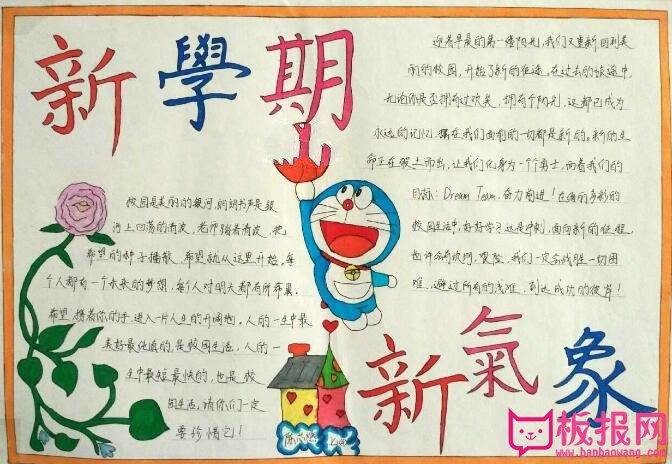 新學期
迎着早晨的第一缕阳光,我们又重新回到美
丽的校园,开始了新的征途,在过去的旅途中,
无论你是否拥有过欢笑,拥有个阳光,这都已成为
永远的记忆,摆在我们面前的一切都是新的。新的生
命正在破土而出,让我们化身为一个勇士,向着我们的
目标:Dream Team,奋力前进!在绚丽多彩的
校园生活中,好好学习 这是冲刺,面向新的征程
也许会有坎坷,艰险,我们一定会战胜一切困
难,避过所有的浅滩,到达成功的彼岸!
校园是美丽的银河,朗朗书声是银
河上回荡的清波,老师踏着清波,把
希望的种子播散,希望就从这里开始。每
个人都有一个未来的梦想,每个人对明天都有所希冀。
希望携着你的手,进入一片人生的开阔地。人的一生中最
美好最优质的,是校园生活,人的一
生中最短最快的,也是校
园生活,请你们一定
要珍惜它!
新氣象
板报网
www.banbaowang.com